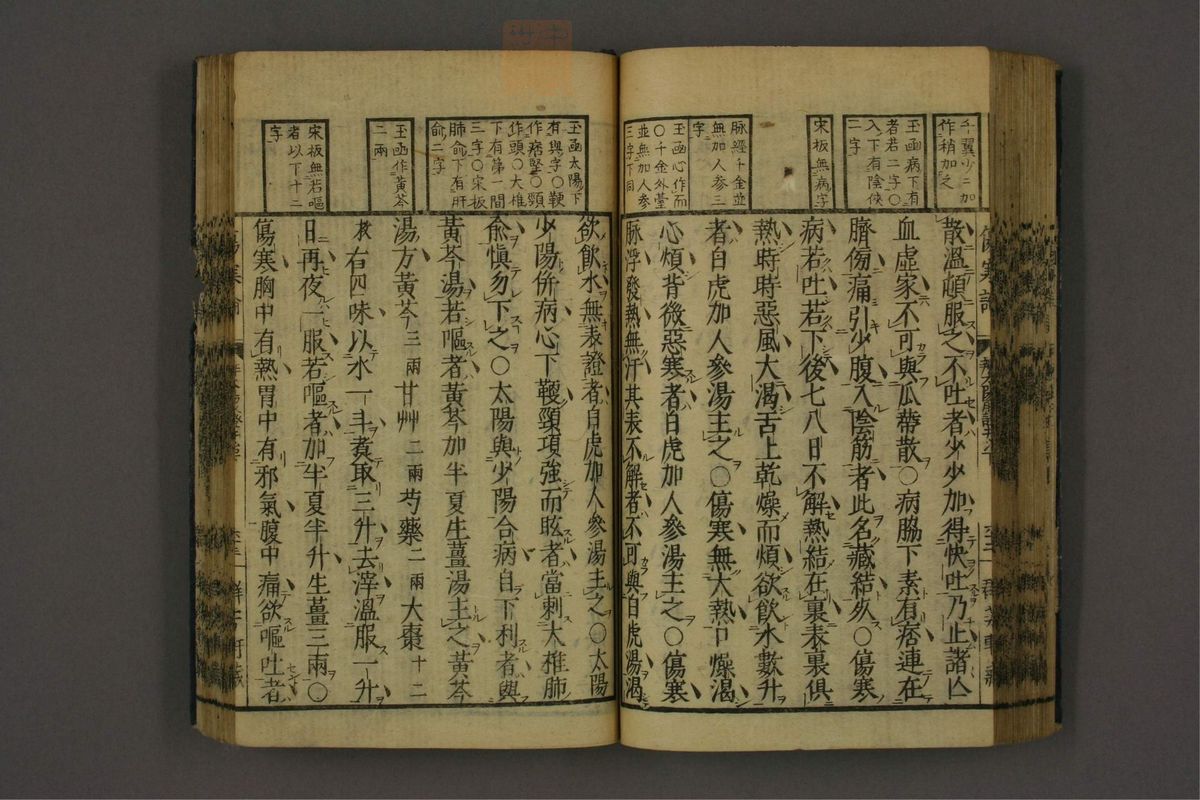 千翼少二加
作稍加之
玉函病下有
者若二字〇
入下有陰俠
二字
宋板無病字
脉經千金並
無加人參三
字
玉函心作而
〇千金外臺
並無加人參
三字下同
散溫頓服之不吐者少少加得快吐乃止諸亾
血虛家不可與瓜蒂散〇病脇下素有痞連在
臍傍痛引少腹入陰筋者此名藏結死〇傷寒
病若吐若下後七八日不解熱結在裏表裏俱
熱時時惡風大渴舌上乾燥而煩欲飮水數升
者白虎加人參湯主之〇傷寒無大熱口燥渴
心煩背微惡寒者白虎加人參湯主之〇傷寒
脉浮發熱無汗其表不解者不可與白虎湯渴
玉函太陽下
有與字〇鞕
作痞堅〇頸
作頭〇大椎
下有第一間
三字〇宋板
肺俞下有肝
俞二字
玉函作黃芩
二兩
宋板無若嘔
者以下十二
字
欲飮水無表證者白虎加人參湯主之〇太陽
少陽併病心下鞕頸項強而眩者當刺大椎肺
俞愼勿下之〇太陽與少陽合病自下利者與
黃芩湯若嘔者黃芩加半夏生薑湯主之黃芩
湯方黃芩三兩甘艸二兩芍藥二兩大棗十二
枚右四味以水一斗煑取三升去滓溫服一升
日再夜一服若嘔者加半夏半升生薑三兩〇
傷寒胸中有熱胃中有邪氣腹中痛欲嘔吐者